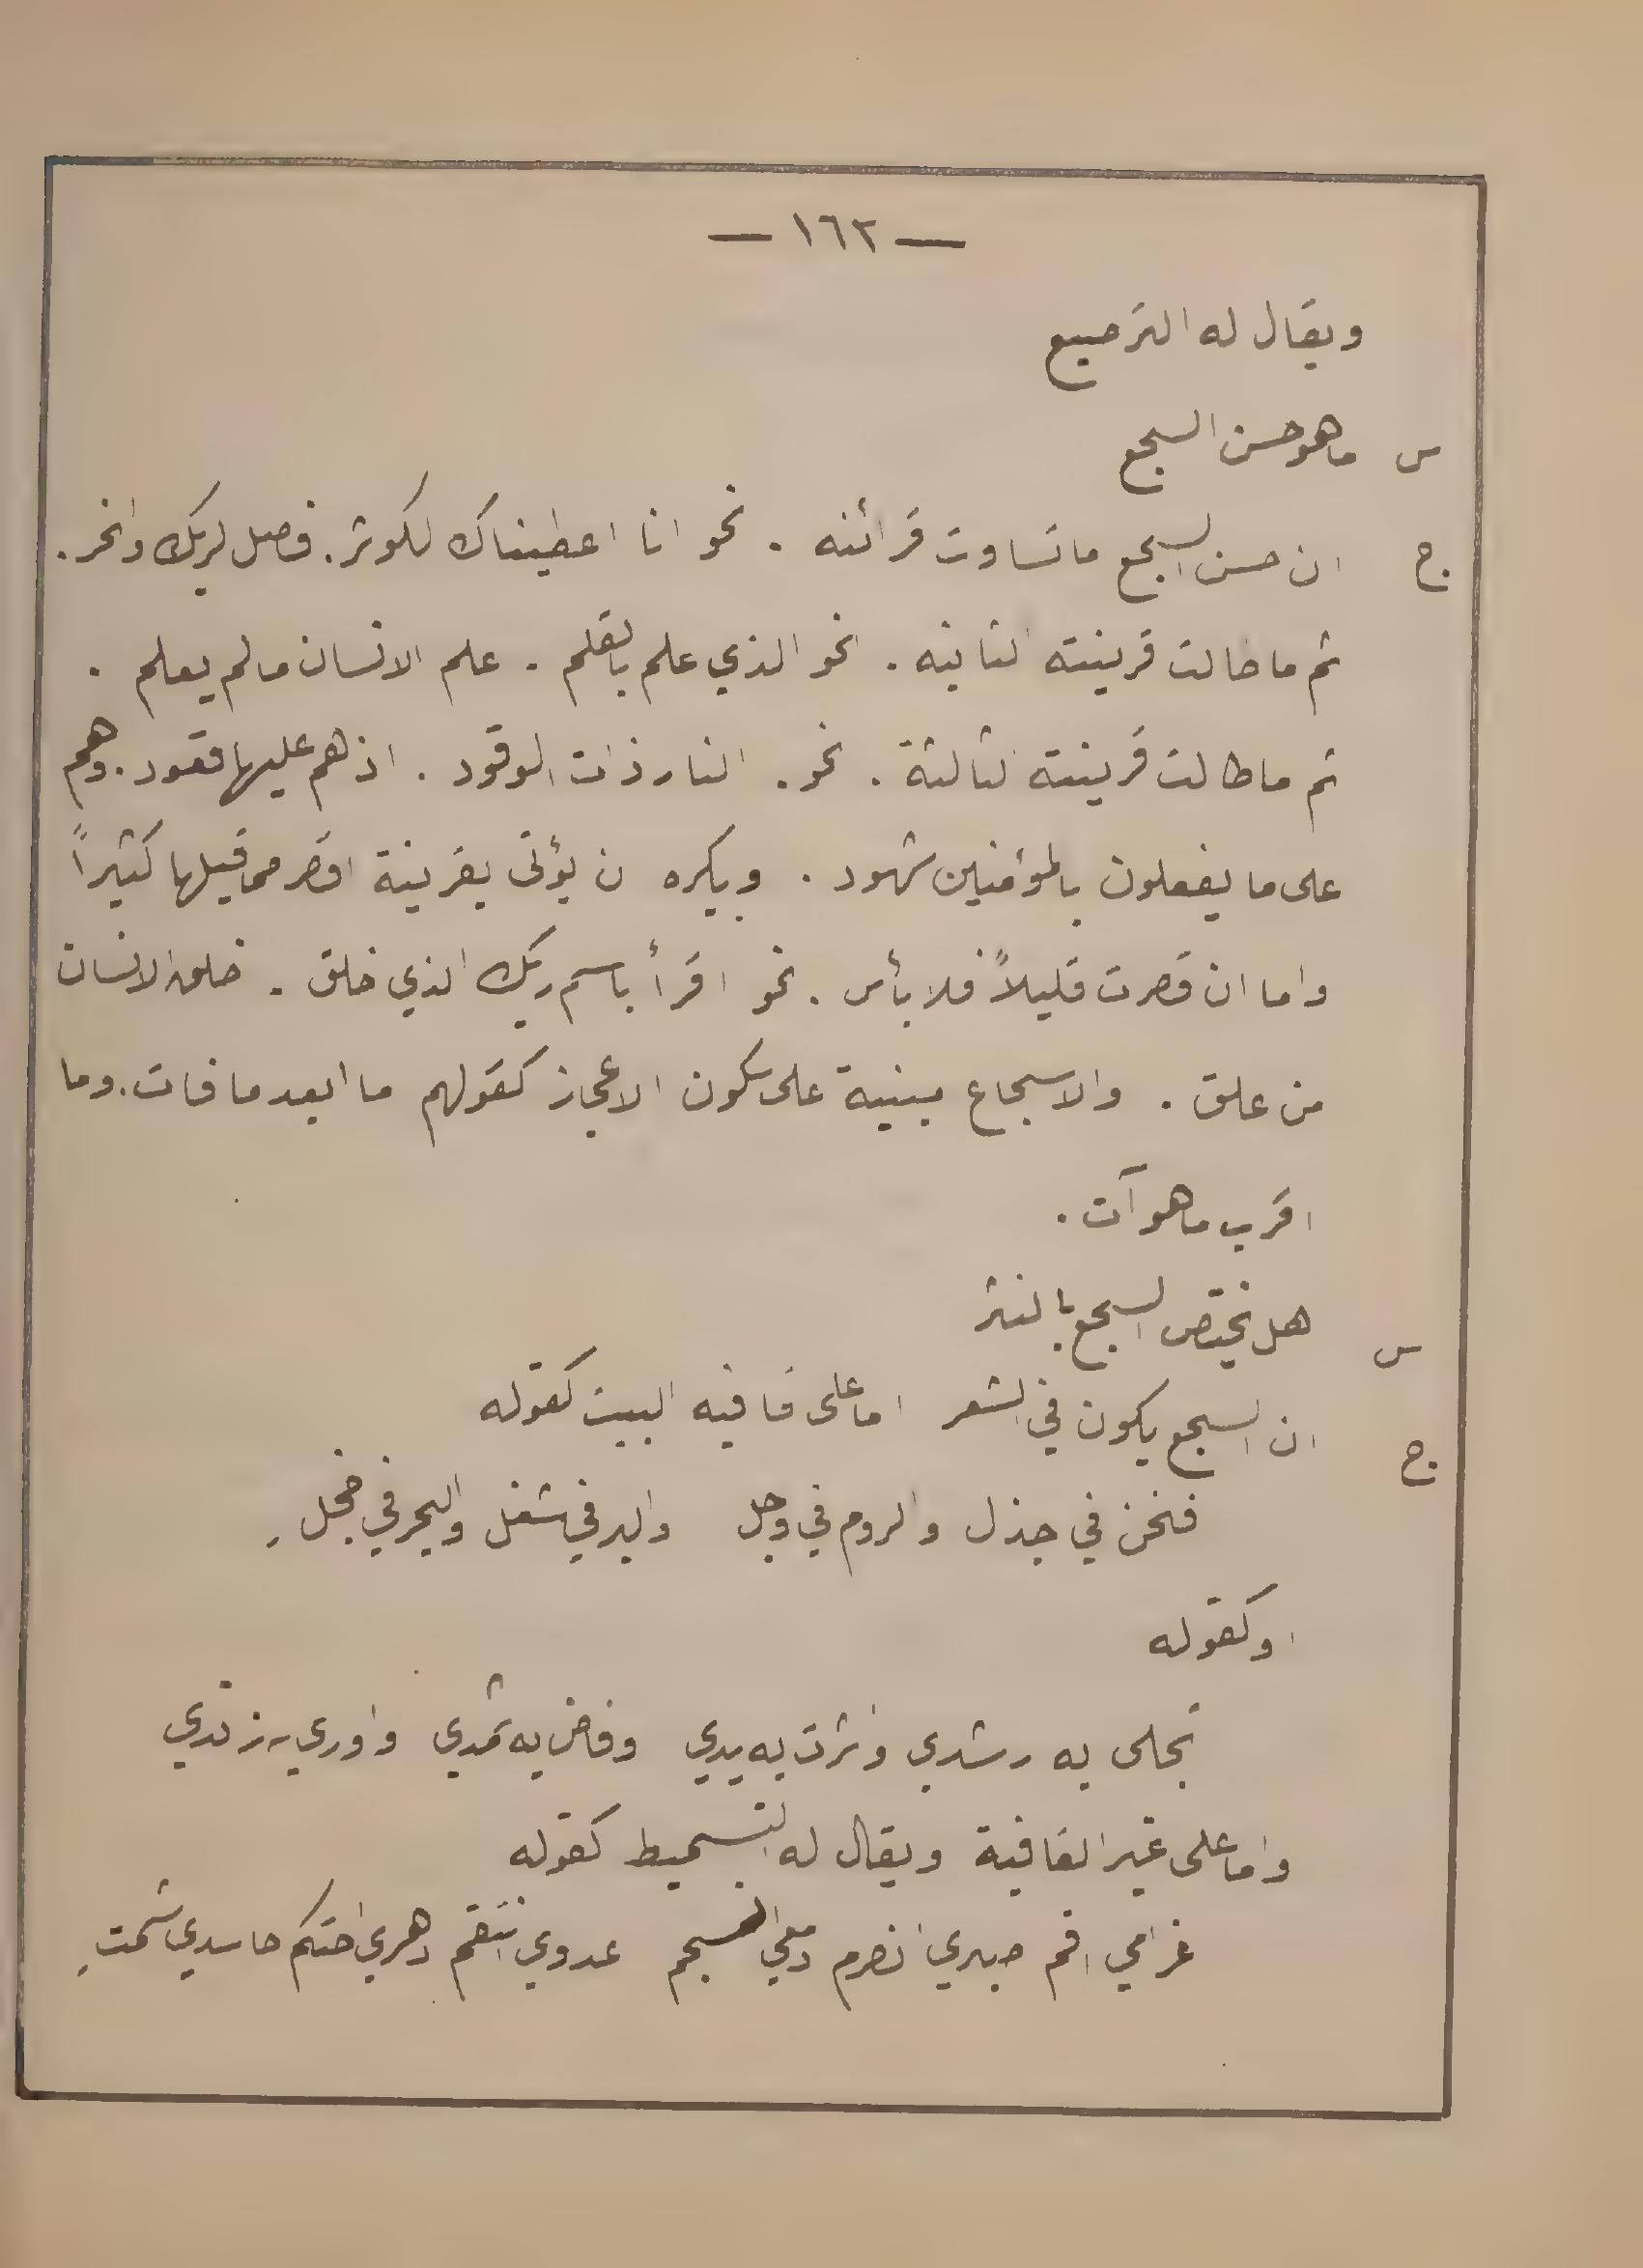 — ١٦٢ —
ويقال له الترصيع
س ما هو حسن السجع
ج ان حسن السجع ما تساوت قرائنه . نحو انا اعطيناك الكوثر . فصل لربك وانحر .
ثم ما طالت قرينته الثانيه . نحو الذي علم بالقلم . علم الانسان ما لم يعلم .
ثم ما طالت قرينته الثالثة . نحو . النار ذات الوقود . اذ هم عليها قعود . وهم
على ما يفعلون بالمؤمنين شهود . ويكره ن يؤتى بقرينة اقصر مما قبلها كثيراً
واما ان قصرت قليلاً فلا بأس . نحو اقرأ باسم ربك الذي خلق . خلق الانسان
من علق . والاسجاع مبنية على سكون الاعجاز كقولهم ما ابعد ما فات . وما
اقرب ما هو آت .
س هل يختص السجع بالنثر
ج ان السجع يكون في الشعر اما على قافيه البيت كقوله
فنحن في جذل والروم في وجل والبر في شغل والبحر في خجل
او كقوله
تجلى به رشدي واثرت به يدي وفاض به ثمدي واورى به زندي
واما على غير القافية ويقال له التسميط كقوله
غرامي اقم صبري انصرم دمعي انسجم عدوي انتقم دهري احتكم حاسدي شمت